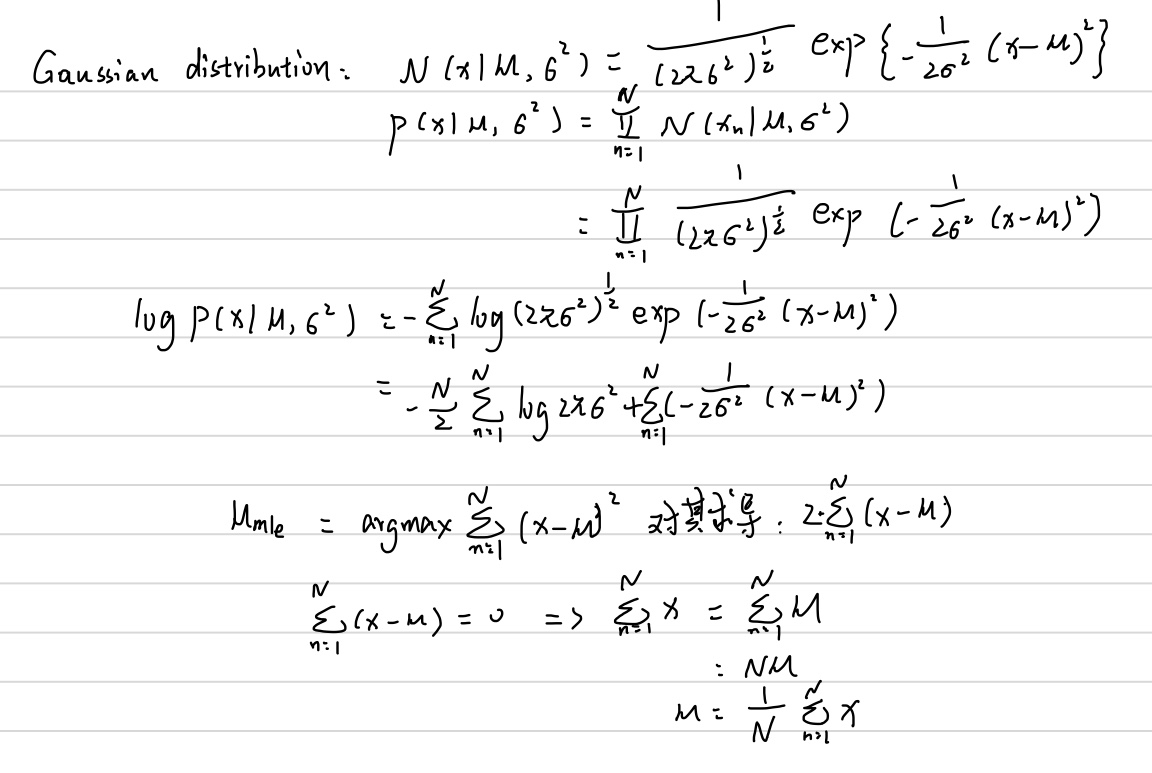 Gaussian distribution: N(x|μ, σ²) = 1/(2πσ²)^{1/2} exp{-1/2σ² (x-μ)²}
p(x|μ, σ²) = ∏_{n=1}^{N} N(x_n|μ, σ²)
= ∏_{n=1}^{N} 1/(2πσ²)^{1/2} exp (-1/2σ² (x-μ)²)
log p(x|μ, σ²) = -∑_{n=1}^{N} log (2πσ²)^{1/2} exp (-1/2σ² (x-μ)²)
= -N/2 ∑_{n=1}^{N} log 2πσ² + ∑_{n=1}^{N} (-1/2σ² (x-μ)²)
μ_mle = argmax ∑_{n=1}^{N} (x-μ)² 对其求导: 2·∑_{n=1}^{N} (x-μ)
∑_{n=1}^{N} (x-μ) = 0 => ∑_{n=1}^{N} x = ∑_{n=1}^{N} μ
= Nμ
μ = 1/N ∑_{n=1}^{N} x